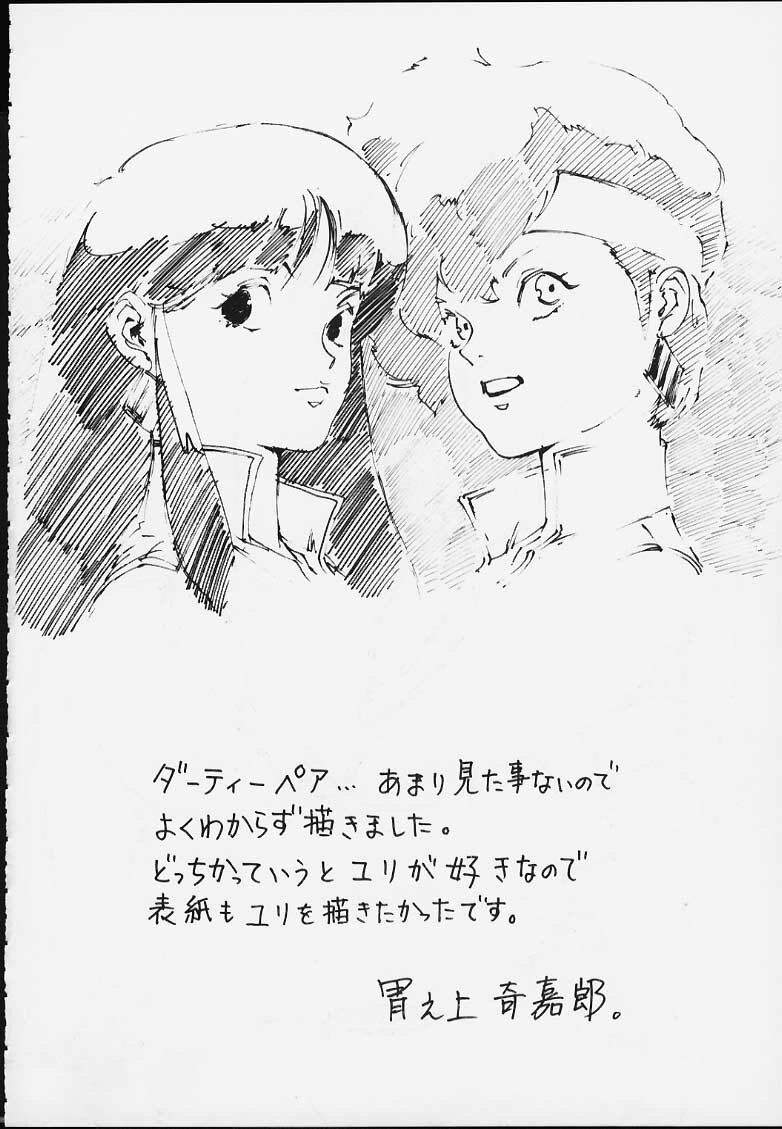 ダーティーペア… あまり見た事ないので
よくわからず描きました。
どっちかっていうとユリが好きなので
表紙もユリを描きたかったです。
胃え上 奇嘉郎。